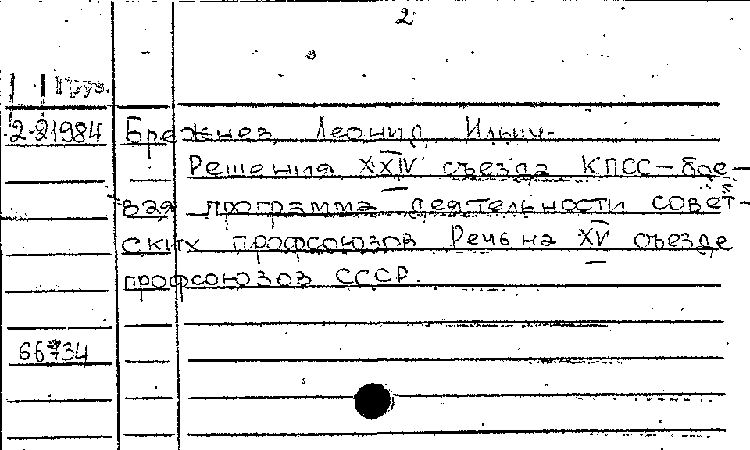 2
Груз.
2-21984 Брежнев, Леонид Ильич.
Решения XXIV съезда КПСС — бое-
вая программа деятельности совет-
ских профсоюзов Речь на XV съезде
профсоюзов СССР.
66734